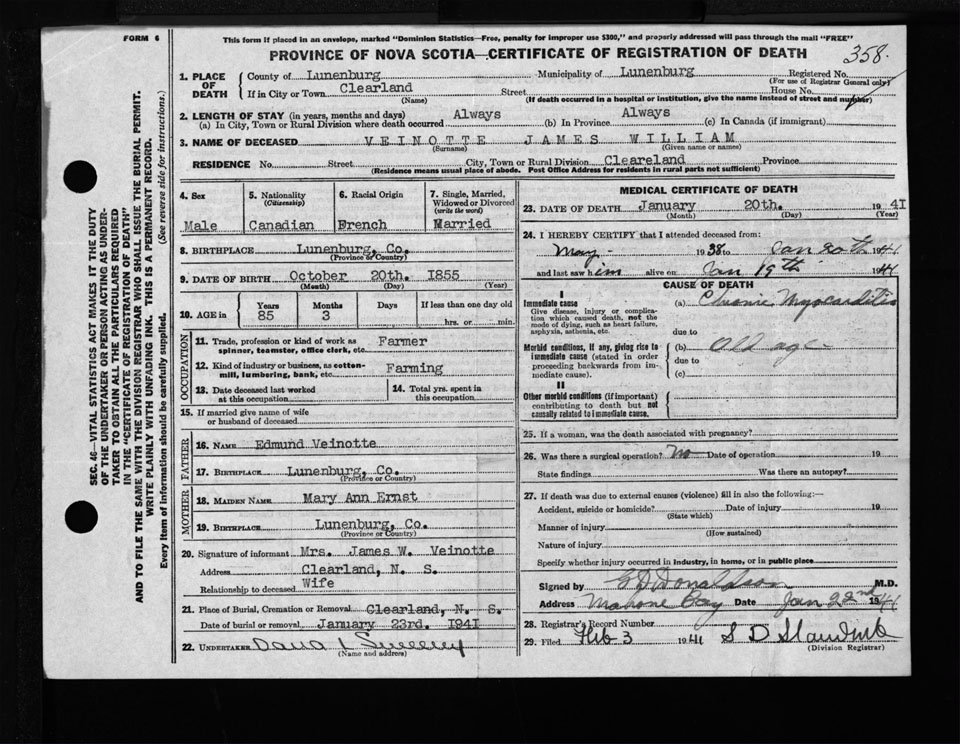 FORM 6
This form if placed in an envelope, marked "Dominion Statistics—Free, penalty for improper use $300," and properly addressed will pass through the mail "FREE"
PROVINCE OF NOVA SCOTIA—CERTIFICATE OF REGISTRATION OF DEATH
358.
1. PLACE OF DEATH
County of Lunenburg Municipality of Lunenburg Registered No.
(For use of Registrar General only)
If in City or Town Clearland Street House No.
(Name) (If death occurred in a hospital or institution, give the name instead of street and number)
2. LENGTH OF STAY (in years, months and days)
(a) In City, Town or Rural Division where death occurred Always (b) In Province Always (c) In Canada (if immigrant)
3. NAME OF DECEASED VEINOTTE JAMES WILLIAM
(Surname) (Given name or names)
RESIDENCE No. Street City, Town or Rural Division Cleareland Province
(Residence means usual place of abode. Post Office Address for residents in rural parts not sufficient)
4. Sex
Male
5. Nationality
(Citizenship)
Canadian
6. Racial Origin
French
7. Single, Married, Widowed or Divorced
(write the word)
Married
8. BIRTHPLACE Lunenburg, Co.
(Province or Country)
9. DATE OF BIRTH October 20th. 1855
(Month) (Day) (Year)
10. AGE in
Years Months Days If less than one day old
85 3 hrs. or min.
OCCUPATION
11. Trade, profession or kind of work as spinner, teamster, office clerk, etc. Farmer
12. Kind of industry or business, as cotton-mill, lumbering, bank, etc. Farming
13. Date deceased last worked at this occupation
14. Total yrs. spent in this occupation
15. If married give name of wife or husband of deceased
FATHER
16. NAME Edmund Veinotte
17. BIRTHPLACE Lunenburg, Co.
(Province or Country)
MOTHER
18. MAIDEN NAME Mary Ann Ernst
19. BIRTHPLACE Lunenburg, Co.
(Province or Country)
20. Signature of informant Mrs. James W. Veinotte
Address Clearland, N. S.
Relationship to deceased Wife
21. Place of Burial, Cremation or Removal Clearland, N. S.
Date of burial or removal January 23rd. 1941
22. UNDERTAKER
(Name and address)
MEDICAL CERTIFICATE OF DEATH
23. DATE OF DEATH January 20th. 1941
(Month) (Day) (Year)
24. I HEREBY CERTIFY that I attended deceased from:
May 1938 to Jan 20th 1941
and last saw him alive on Jan 19th 1941
CAUSE OF DEATH
I
Immediate cause
Give disease, injury or complication which caused death, not the mode of dying, such as heart failure, asphyxia, asthenia, etc.
(a) Chronic Myocarditis
due to
Morbid conditions, if any, giving rise to immediate cause (stated in order proceeding backwards from immediate cause).
(b) Old age
due to
(c)
II
Other morbid conditions (if important) contributing to death but not causally related to immediate cause.
25. If a woman, was the death associated with pregnancy?
26. Was there a surgical operation? No Date of operation 19
State findings Was there an autopsy?
27. If death was due to external causes (violence) fill in also the following:—
Accident, suicide or homicide? Date of injury 19
(State which)
Manner of injury
(How sustained)
Nature of injury
Specify whether injury occurred in industry, in home, or in public place
Signed by Donaldson M.D.
Address Mahone Bay Date Jan 22nd 1941
28. Registrar's Record Number
29. Filed Feb 3 1941 S D
(Division Registrar)
SEC. 46—VITAL STATISTICS ACT MAKES IT THE DUTY
OF THE UNDERTAKER OR PERSON ACTING AS UNDER-
TAKER TO OBTAIN ALL THE PARTICULARS REQUIRED
IN THE "CERTIFICATE OF REGISTRATION OF DEATH"
AND TO FILE THE SAME WITH THE DIVISION REGISTRAR WHO SHALL ISSUE THE BURIAL PERMIT.
WRITE PLAINLY WITH UNFADING INK. THIS IS A PERMANENT RECORD.
Every item of information should be carefully supplied. (See reverse side for instructions.)